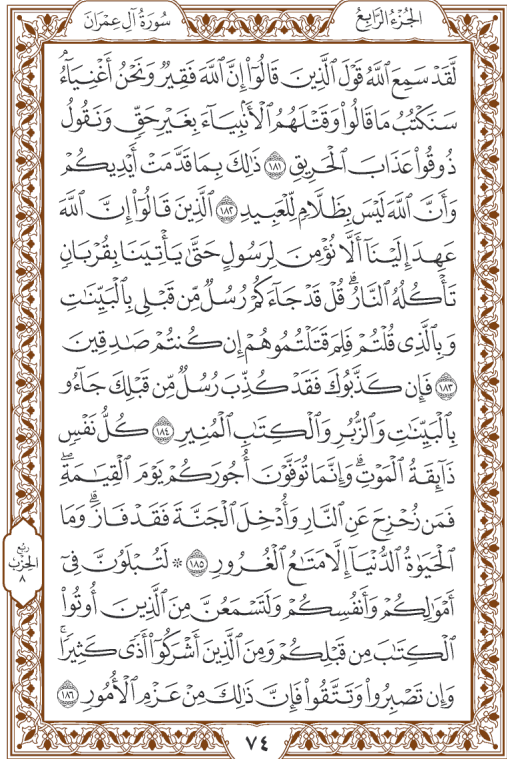 الجزء الرابع
سورة آل عمران
لَّقَدْ سَمِعَ ٱللَّهُ قَوْلَ ٱلَّذِينَ قَالُوٓا۟ إِنَّ ٱللَّهَ فَقِيرٌ وَنَحْنُ أَغْنِيَآءُ ۘ
سَنَكْتُبُ مَا قَالُوا۟ وَقَتْلَهُمُ ٱلْأَنۢبِيَآءَ بِغَيْرِ حَقٍّ وَنَقُولُ
ذُوقُوا۟ عَذَابَ ٱلْحَرِيقِ ١٨١ ذَٰلِكَ بِمَا قَدَّمَتْ أَيْدِيكُمْ
وَأَنَّ ٱللَّهَ لَيْسَ بِظَلَّامٍ لِّلْعَبِيدِ ١٨٢ ٱلَّذِينَ قَالُوٓا۟ إِنَّ ٱللَّهَ
عَهِدَ إِلَيْنَآ أَلَّا نُؤْمِنَ لِرَسُولٍ حَتَّىٰ يَأْتِيَنَا بِقُرْبَانٍ
تَأْكُلُهُ ٱلنَّارُ ۗ قُلْ قَدْ جَآءَكُمْ رُسُلٌ مِّن قَبْلِى بِٱلْبَيِّنَـٰتِ
وَبِٱلَّذِى قُلْتُمْ فَلِمَ قَتَلْتُمُوهُمْ إِن كُنتُمْ صَـٰدِقِينَ
١٨٣ فَإِن كَذَّبُوكَ فَقَدْ كُذِّبَ رُسُلٌ مِّن قَبْلِكَ جَآءُو
بِٱلْبَيِّنَـٰتِ وَٱلزُّبُرِ وَٱلْكِتَـٰبِ ٱلْمُنِيرِ ١٨٤ كُلُّ نَفْسٍ
ذَآئِقَةُ ٱلْمَوْتِ ۗ وَإِنَّمَا تُوَفَّوْنَ أُجُورَكُمْ يَوْمَ ٱلْقِيَـٰمَةِ ۖ
فَمَن زُحْزِحَ عَنِ ٱلنَّارِ وَأُدْخِلَ ٱلْجَنَّةَ فَقَدْ فَازَ ۗ وَمَا
ٱلْحَيَوٰةُ ٱلدُّنْيَآ إِلَّا مَتَـٰعُ ٱلْغُرُورِ ١٨٥ ۞ لَتُبْلَوُنَّ فِىٓ
أَمْوَٰلِكُمْ وَأَنفُسِكُمْ وَلَتَسْمَعُنَّ مِنَ ٱلَّذِينَ أُوتُوا۟
ٱلْكِتَـٰبَ مِن قَبْلِكُمْ وَمِنَ ٱلَّذِينَ أَشْرَكُوٓا۟ أَذًى كَثِيرًا ۚ
وَإِن تَصْبِرُوا۟ وَتَتَّقُوا۟ فَإِنَّ ذَٰلِكَ مِنْ عَزْمِ ٱلْأُمُورِ ١٨٦
ربع
الحزب
٨
٧٤